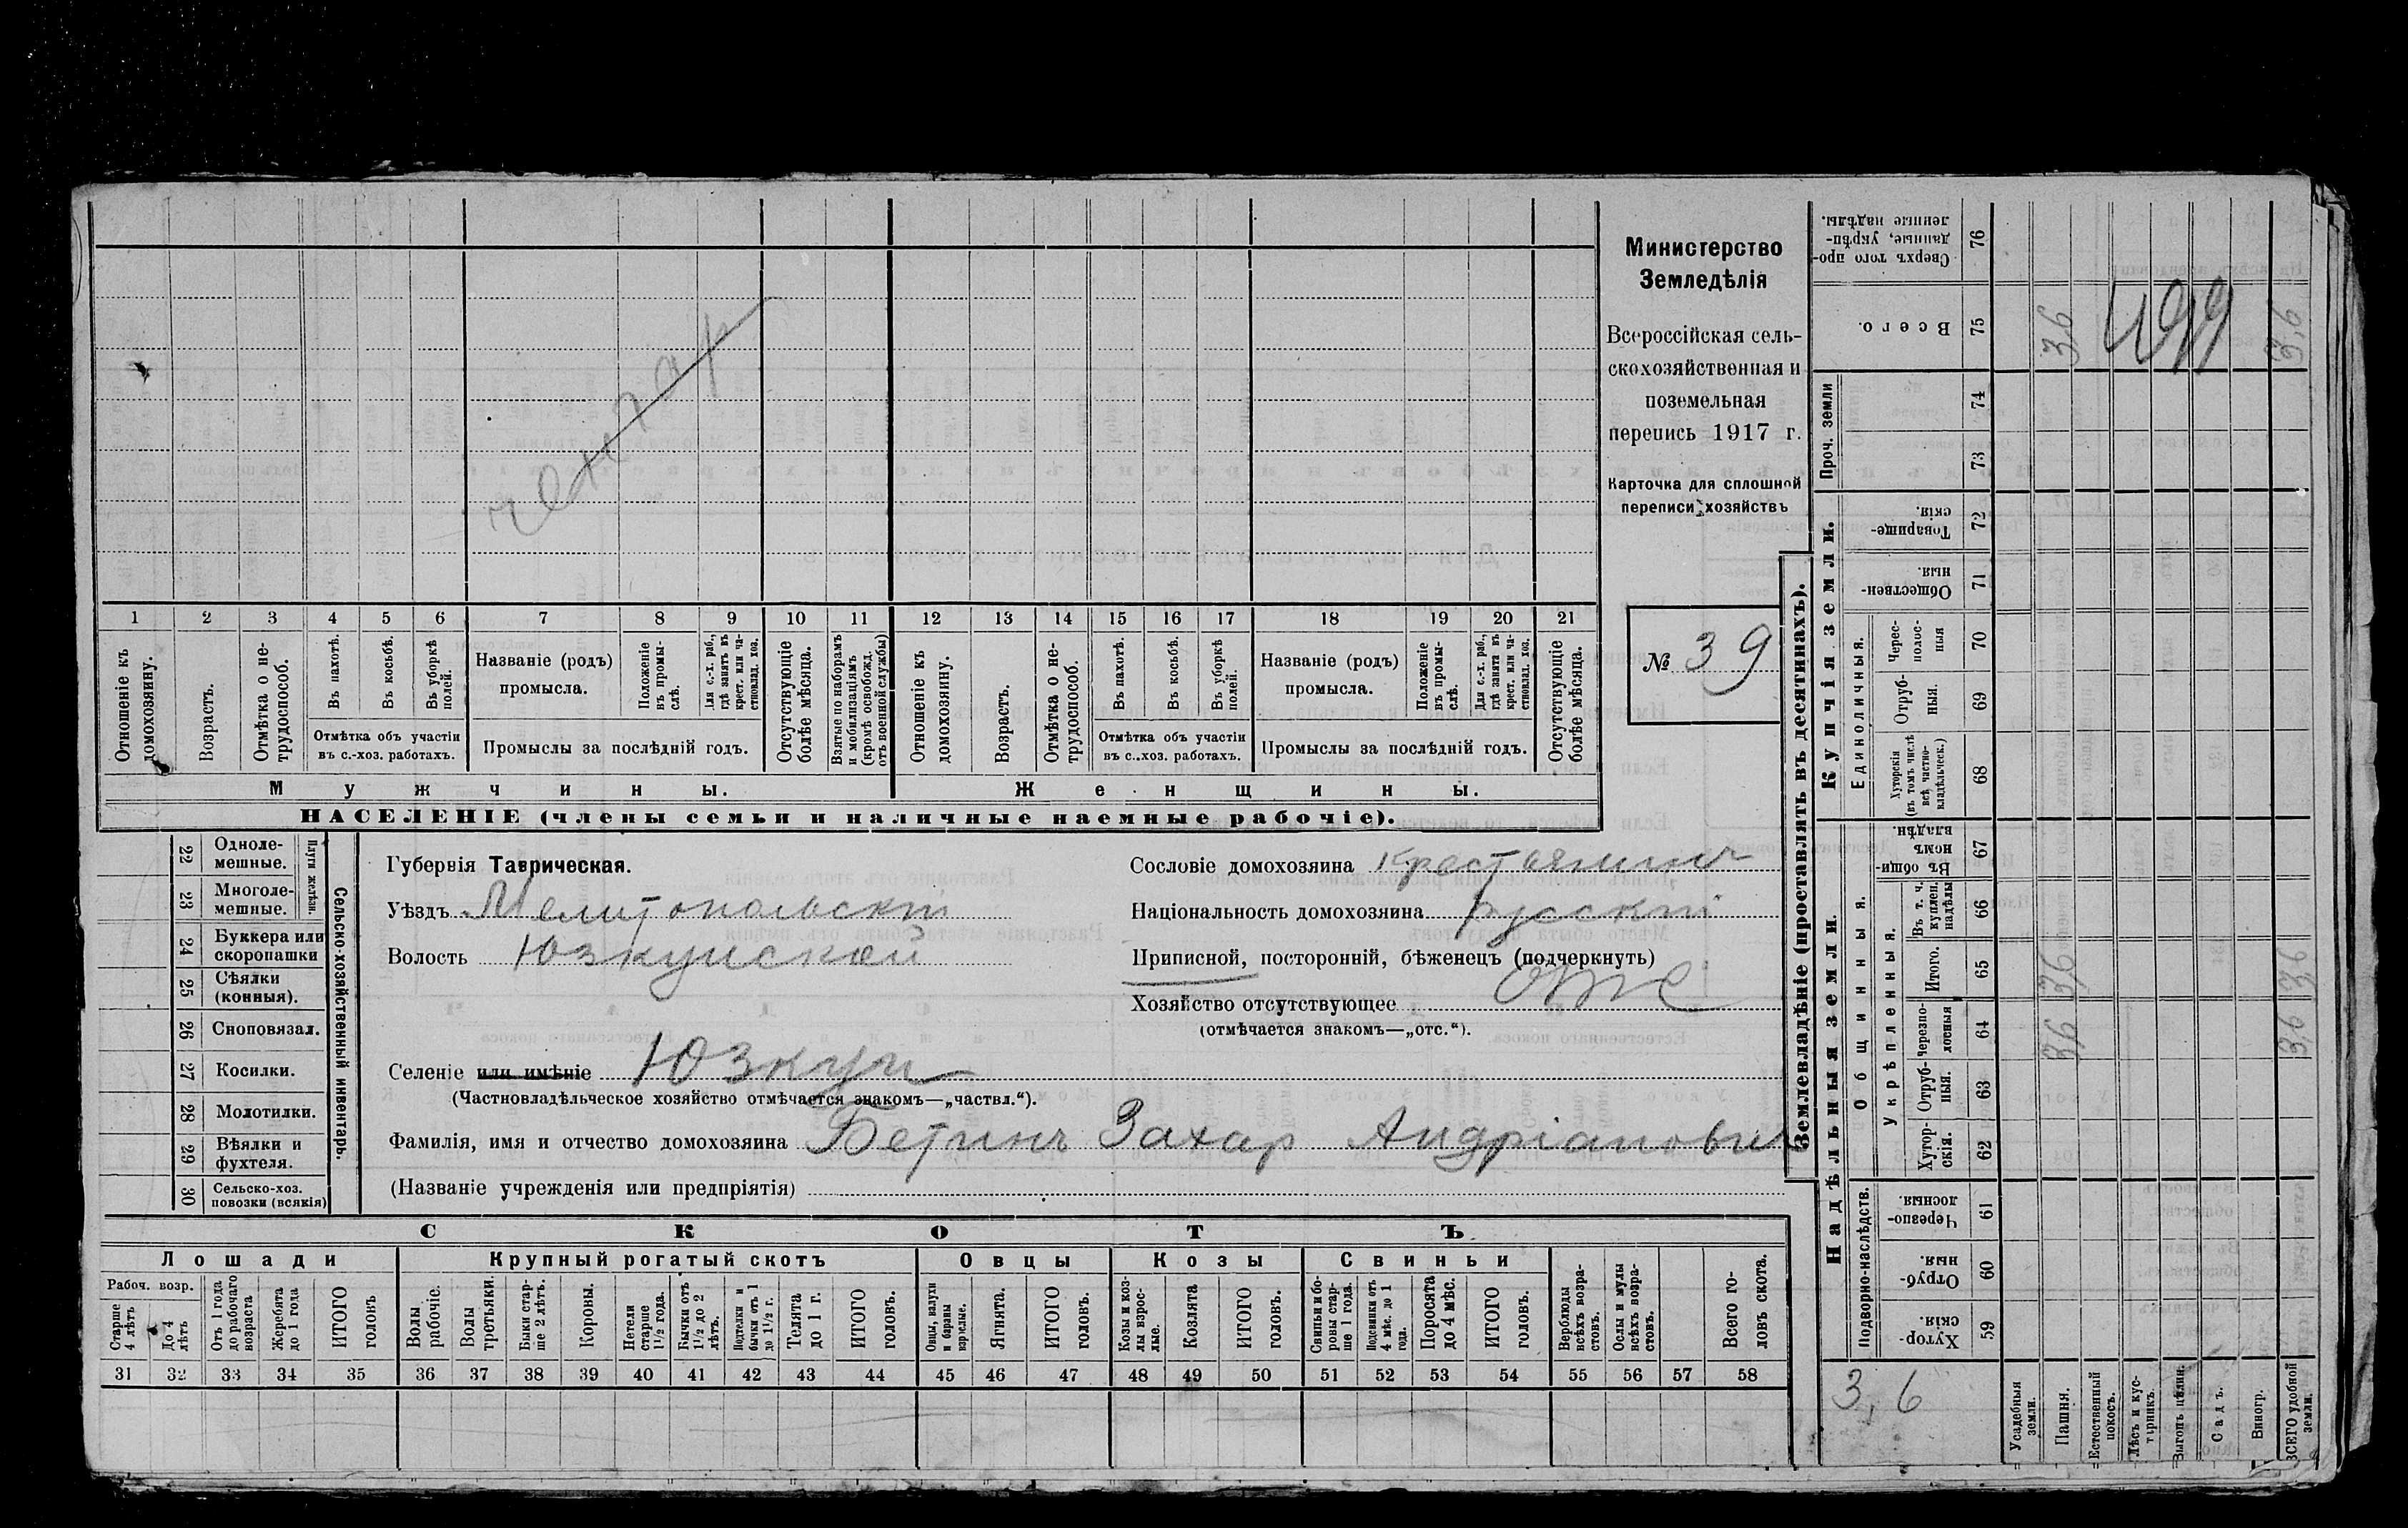 Министерство
Земледѣлія
Всероссійская сель-
скохозяйственная и
поземельная
перепись 1917 г.
Карточка для сплошной
переписи хозяйствъ
№ 39
1 2 3 4 5 6 7 8 9 10 11 12 13 14 15 16 17 18 19 20 21
Отношеніе къ домохозяину.
Возрастъ.
Отмѣтка о не-трудоспособ.
Въ пахотѣ.
Въ косьбѣ.
Въ уборкѣ полей.
Отмѣтка объ участіи
въ с.-хоз. работахъ.
Названіе (родъ)
промысла.
Положеніе въ промы-слѣ.
Для с.-х. раб., гдѣ занятъ въ крест. или ча-ствовлад. хоз.
Промыслы за послѣдній годъ.
Отсутствующіе болѣе мѣсяца.
Взятые по наборамъ и мобилизаціямъ (кромѣ освобожд. отъ военной службы)
Отношеніе къ домохозяину.
Возрастъ.
Отмѣтка о не-трудоспособ.
Въ пахотѣ.
Въ косьбѣ.
Въ уборкѣ полей.
Отмѣтка объ участіи
въ с.-хоз. работахъ.
Названіе (родъ)
промысла.
Положеніе въ промы-слѣ.
Для с.-х. раб., гдѣ занята въ крест. или ча-ствовлад. хоз.
Промыслы за послѣдній годъ.
Отсутствующіе болѣе мѣсяца.
Мужчины. Женщины.
НАСЕЛЕНІЕ (члены семьи и наличные наемные рабочіе).
22 Одноле-мешные.
23 Многоле-мешные.
Плуги желѣзн.
24 Буккера или скоропашки
25 Сѣялки (конныя).
26 Сноповязал.
27 Косилки.
28 Молотилки.
29 Вѣялки и фухтеля.
30 Сельско-хоз. повозки (всякія)
Сельско-хозяйственный инвентарь.
Губернія Таврическая.
Уѣздъ Мелитопольскій
Волость Юзкуйской
Сословіе домохозяина Крестьянинъ
Національность домохозяина русскій
Приписной, посторонній, бѣженецъ (подчеркнуть)
Хозяйство отсутствующее отс
(отмѣчается знакомъ—„отс.“).
Селеніе или имѣніе Юзкуи
(Частновладѣльческое хозяйство отмѣчается знакомъ—„частвл.“).
Фамилія, имя и отчество домохозяина Бетинъ Захар Андріанович
(Названіе учрежденія или предпріятія)
СКОТЪ
Лошади Крупный рогатый скотъ Овцы Козы Свиньи
Рабоч. возр.
Старше 4 лѣтъ
До 4 лѣтъ
Отъ 1 года до рабочаго возраста
Жеребята до 1 года
ИТОГО головъ
Волы рабочіе.
Волы третьяки.
Быки стар-ше 2 лѣтъ.
Коровы.
Нетели старше 1½ года.
Бычки отъ 1½ до 2 лѣтъ.
Подтелки и бычки отъ 1 до 1½ г.
Телята до 1 г.
ИТОГО головъ.
Овцы, валухи и бараны взрослые.
Ягнята.
ИТОГО головъ.
Козы и коз-лы взрос-лые.
Козлята
ИТОГО головъ.
Свиньи и бо-ровы стар-ше 1 года.
Подсвинки отъ 4 мѣс. до 1 года.
Поросята до 4 мѣс.
ИТОГО головъ.
Верблюды всѣхъ возра-стовъ.
Ослы и мулы всѣхъ возра-стовъ.
Всего го-ловъ скота.
31 32 33 34 35 36 37 38 39 40 41 42 43 44 45 46 47 48 49 50 51 52 53 54 55 56 57 58
Землевладѣніе (проставлять въ десятинахъ).
Надѣльныя земли. Купчія земли. Проч. земли
Подворно-наслѣдств.
Общинныя.
Укрѣпленныя.
Единоличныя.
Хутор-скія. 59
Отруб-ныя. 60
Черезпо-лосныя 61
Хутор-скія. 62
Отруб-ныя. 63
Черезпо-лосныя 64
Итого. 65
Въ т. ч. куплен. надѣлы 66
Въ общи-номъ владѣн. 67
Хуторскія (въ томъ числѣ всѣ частно-владѣльческ.) 68
Отруб-ныя. 69
Черес-полос-ныя 70
Обществен-ныя. 71
Товарище-скія. 72
73
74
Всего. 75
Сверхъ того про-данные, укрѣп-ленные надѣлы. 76
3,6
Усадебныя земли.
Пашня. 3,6 3,6 3,6
Естественный покосъ.
Лѣсъ и кус-тарникъ.
Выгонъ цѣлин.
Садъ.
Виногр.
ВСЕГО удобной земли. 3,6 3,6 3,6